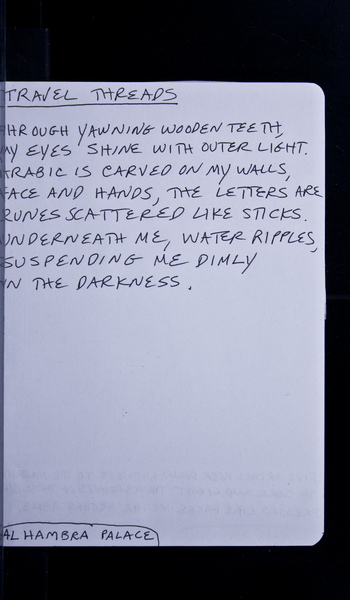 TRAVEL THREADS
THROUGH YAWNING WOODEN TEETH,
MY EYES SHINE WITH OUTER LIGHT.
ARABIC IS CARVED ON MY WALLS,
FACE AND HANDS, THE LETTERS ARE
RUNES SCATTERED LIKE STICKS.
UNDERNEATH ME, WATER RIPPLES,
SUSPENDING ME DIMLY
IN THE DARKNESS.
ALHAMBRA PALACE